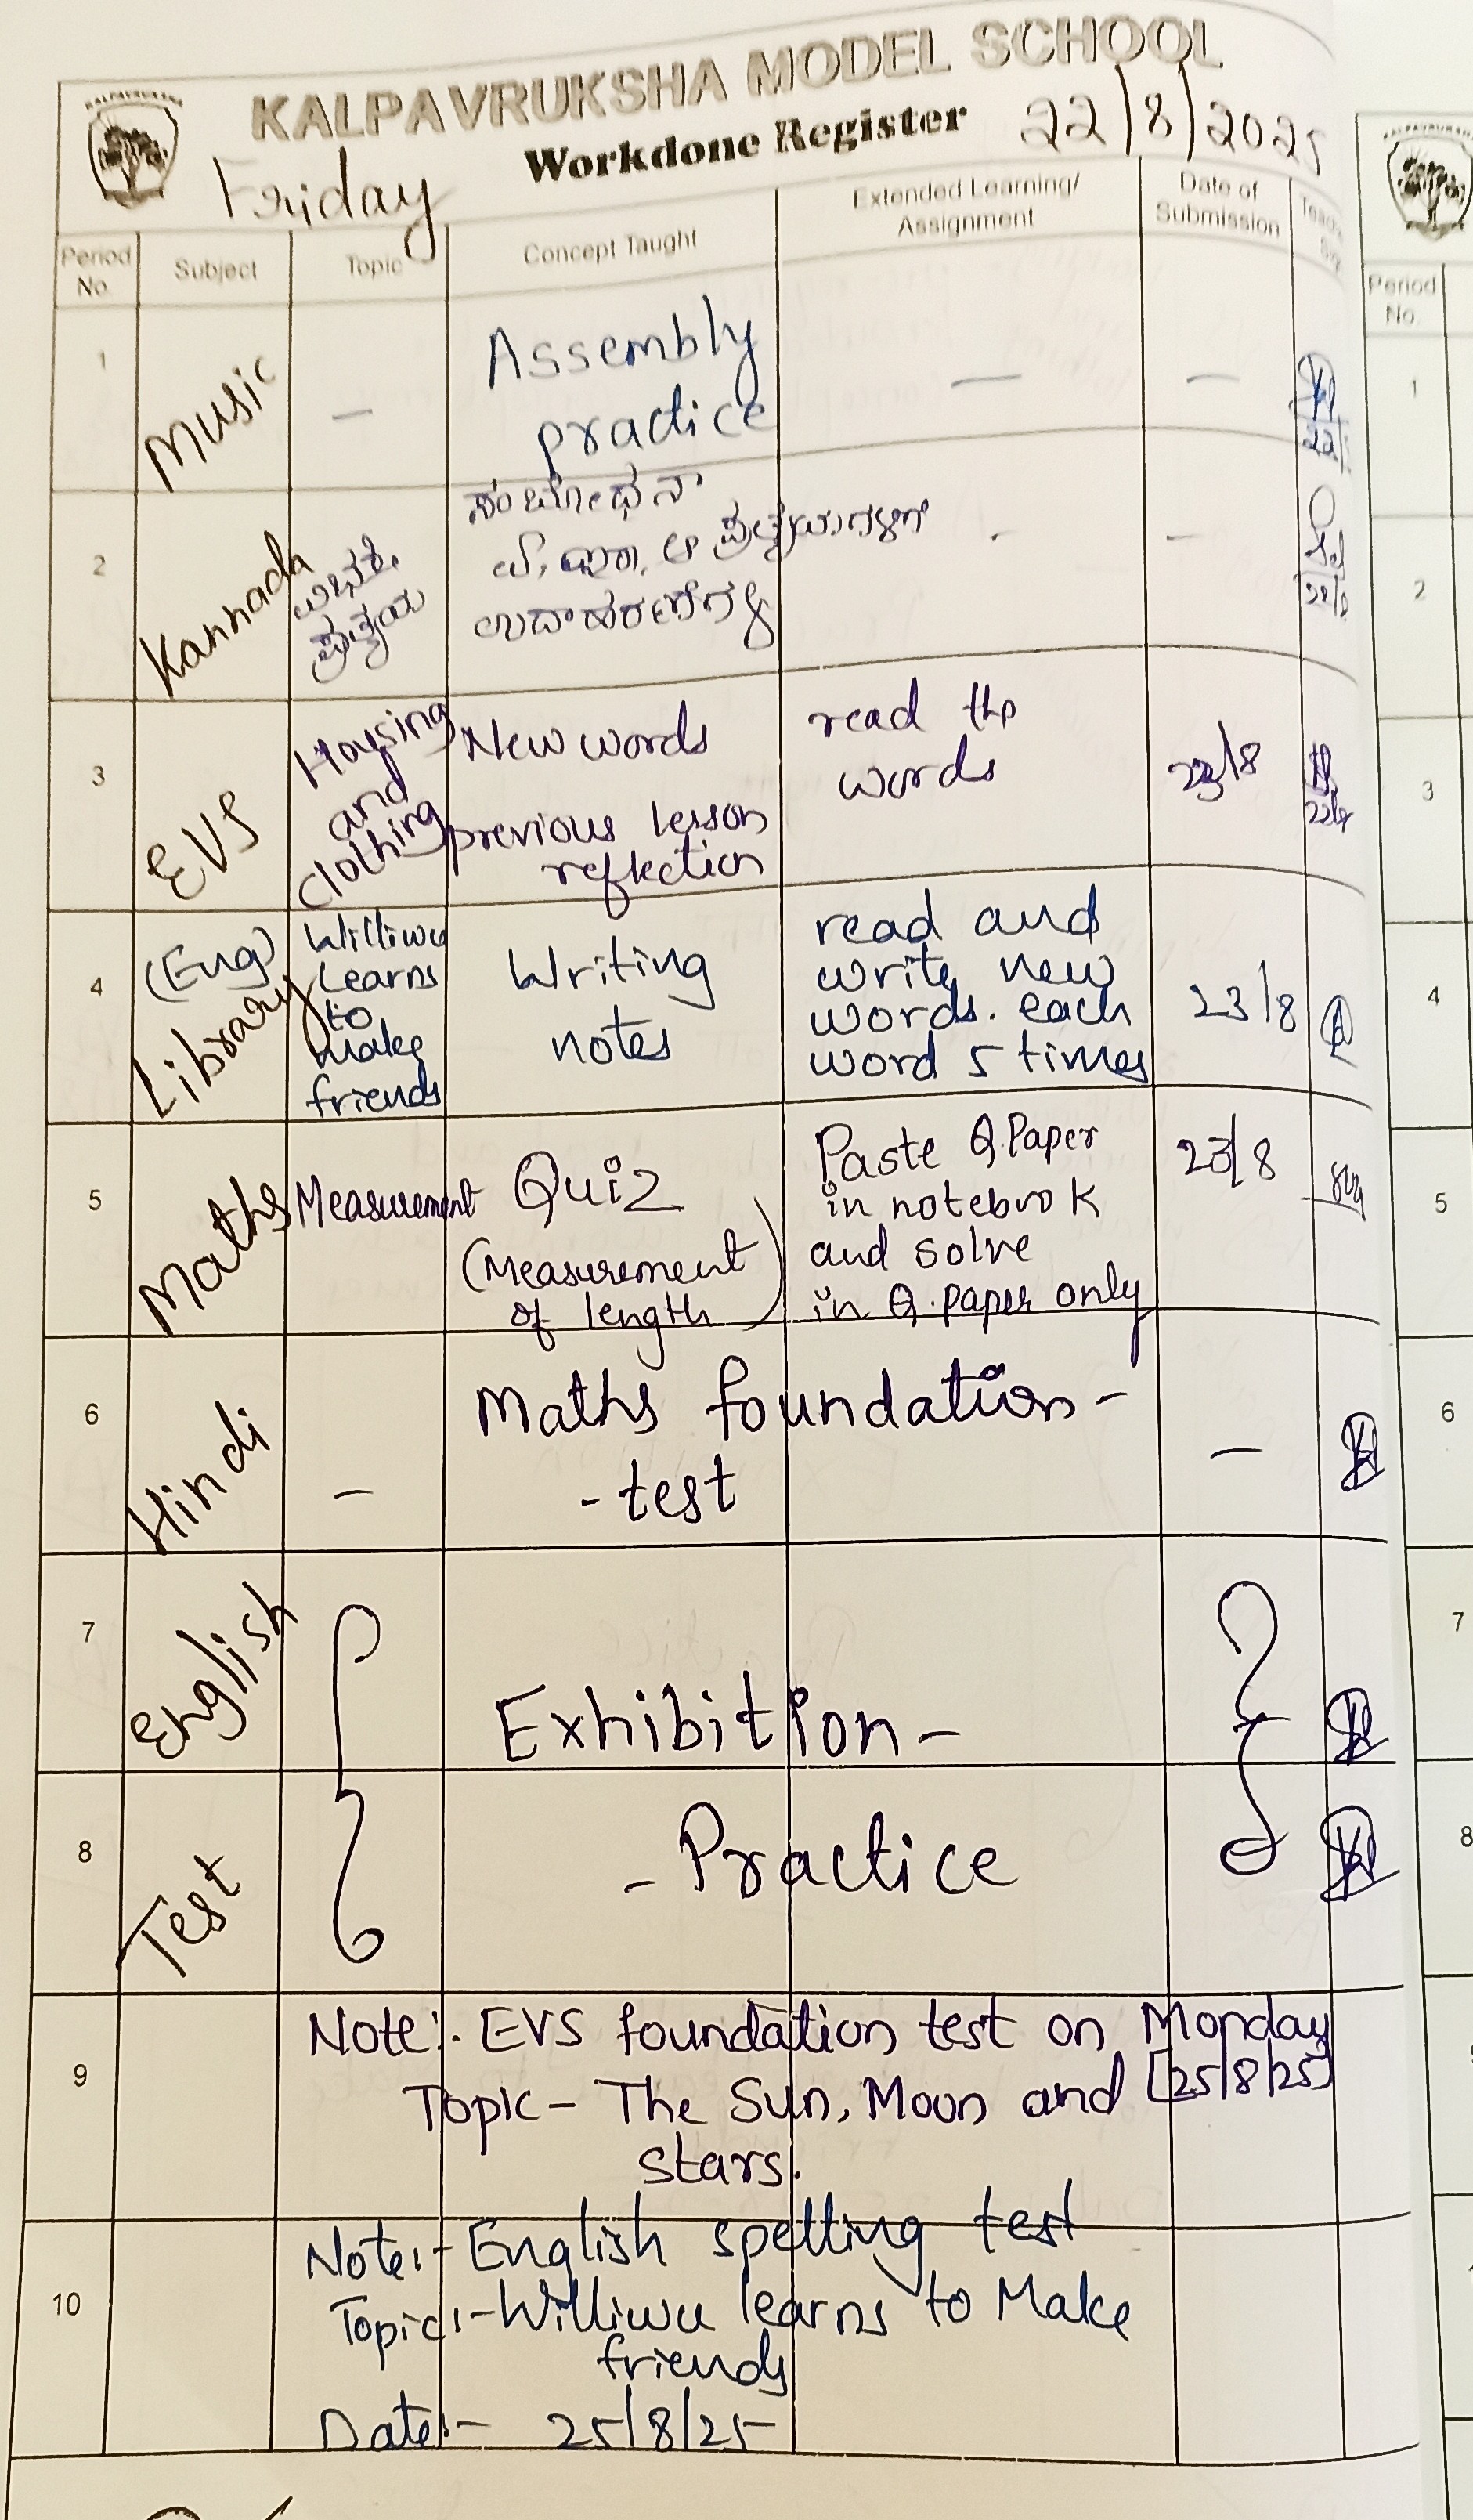 KALPAVRUKSHA MODEL SCHOOL
KALPAVRUKSHA
Workdone Register
22/8/2025
Friday
Period No.
Subject
Topic
Concept Taught
Extended Learning/ Assignment
Date of Submission
1
Music
—
Assembly
practice
—
—
2
Kannada
ಪ್ರತ್ಯಯ
ಸಂಬೋಧನಾ
ಆ ಪ್ರತ್ಯಯಗಳಿಗೆ
ಉದಾಹರಣೆಗಳು
-
-
3
EVS
Housing
and
clothing
New words
previous lesson
reflection
read the
words
23/8
22/8
4
(Eng)
Library
Williwu
Learns
to
make
friends
Writing
notes
read and
write new
words. each
word 5 times
23/8
5
Maths
Measurement
Quiz
(Measurement
of length)
Paste Q.Paper
in notebook
and solve
in Q.paper only
23/8
6
Hindi
-
Maths foundation-
-test
—
7
English
Exhibition-
8
Test
-Practice
9
Note:. EVS foundation test on Monday
[25/8/25]
Topic- The Sun, Moon and
stars.
10
Note:- English spelling test
Topic:- Williwu learns to Make
friends
Date:- 25/8/25
Period No.
1
2
3
4
5
6
7
8